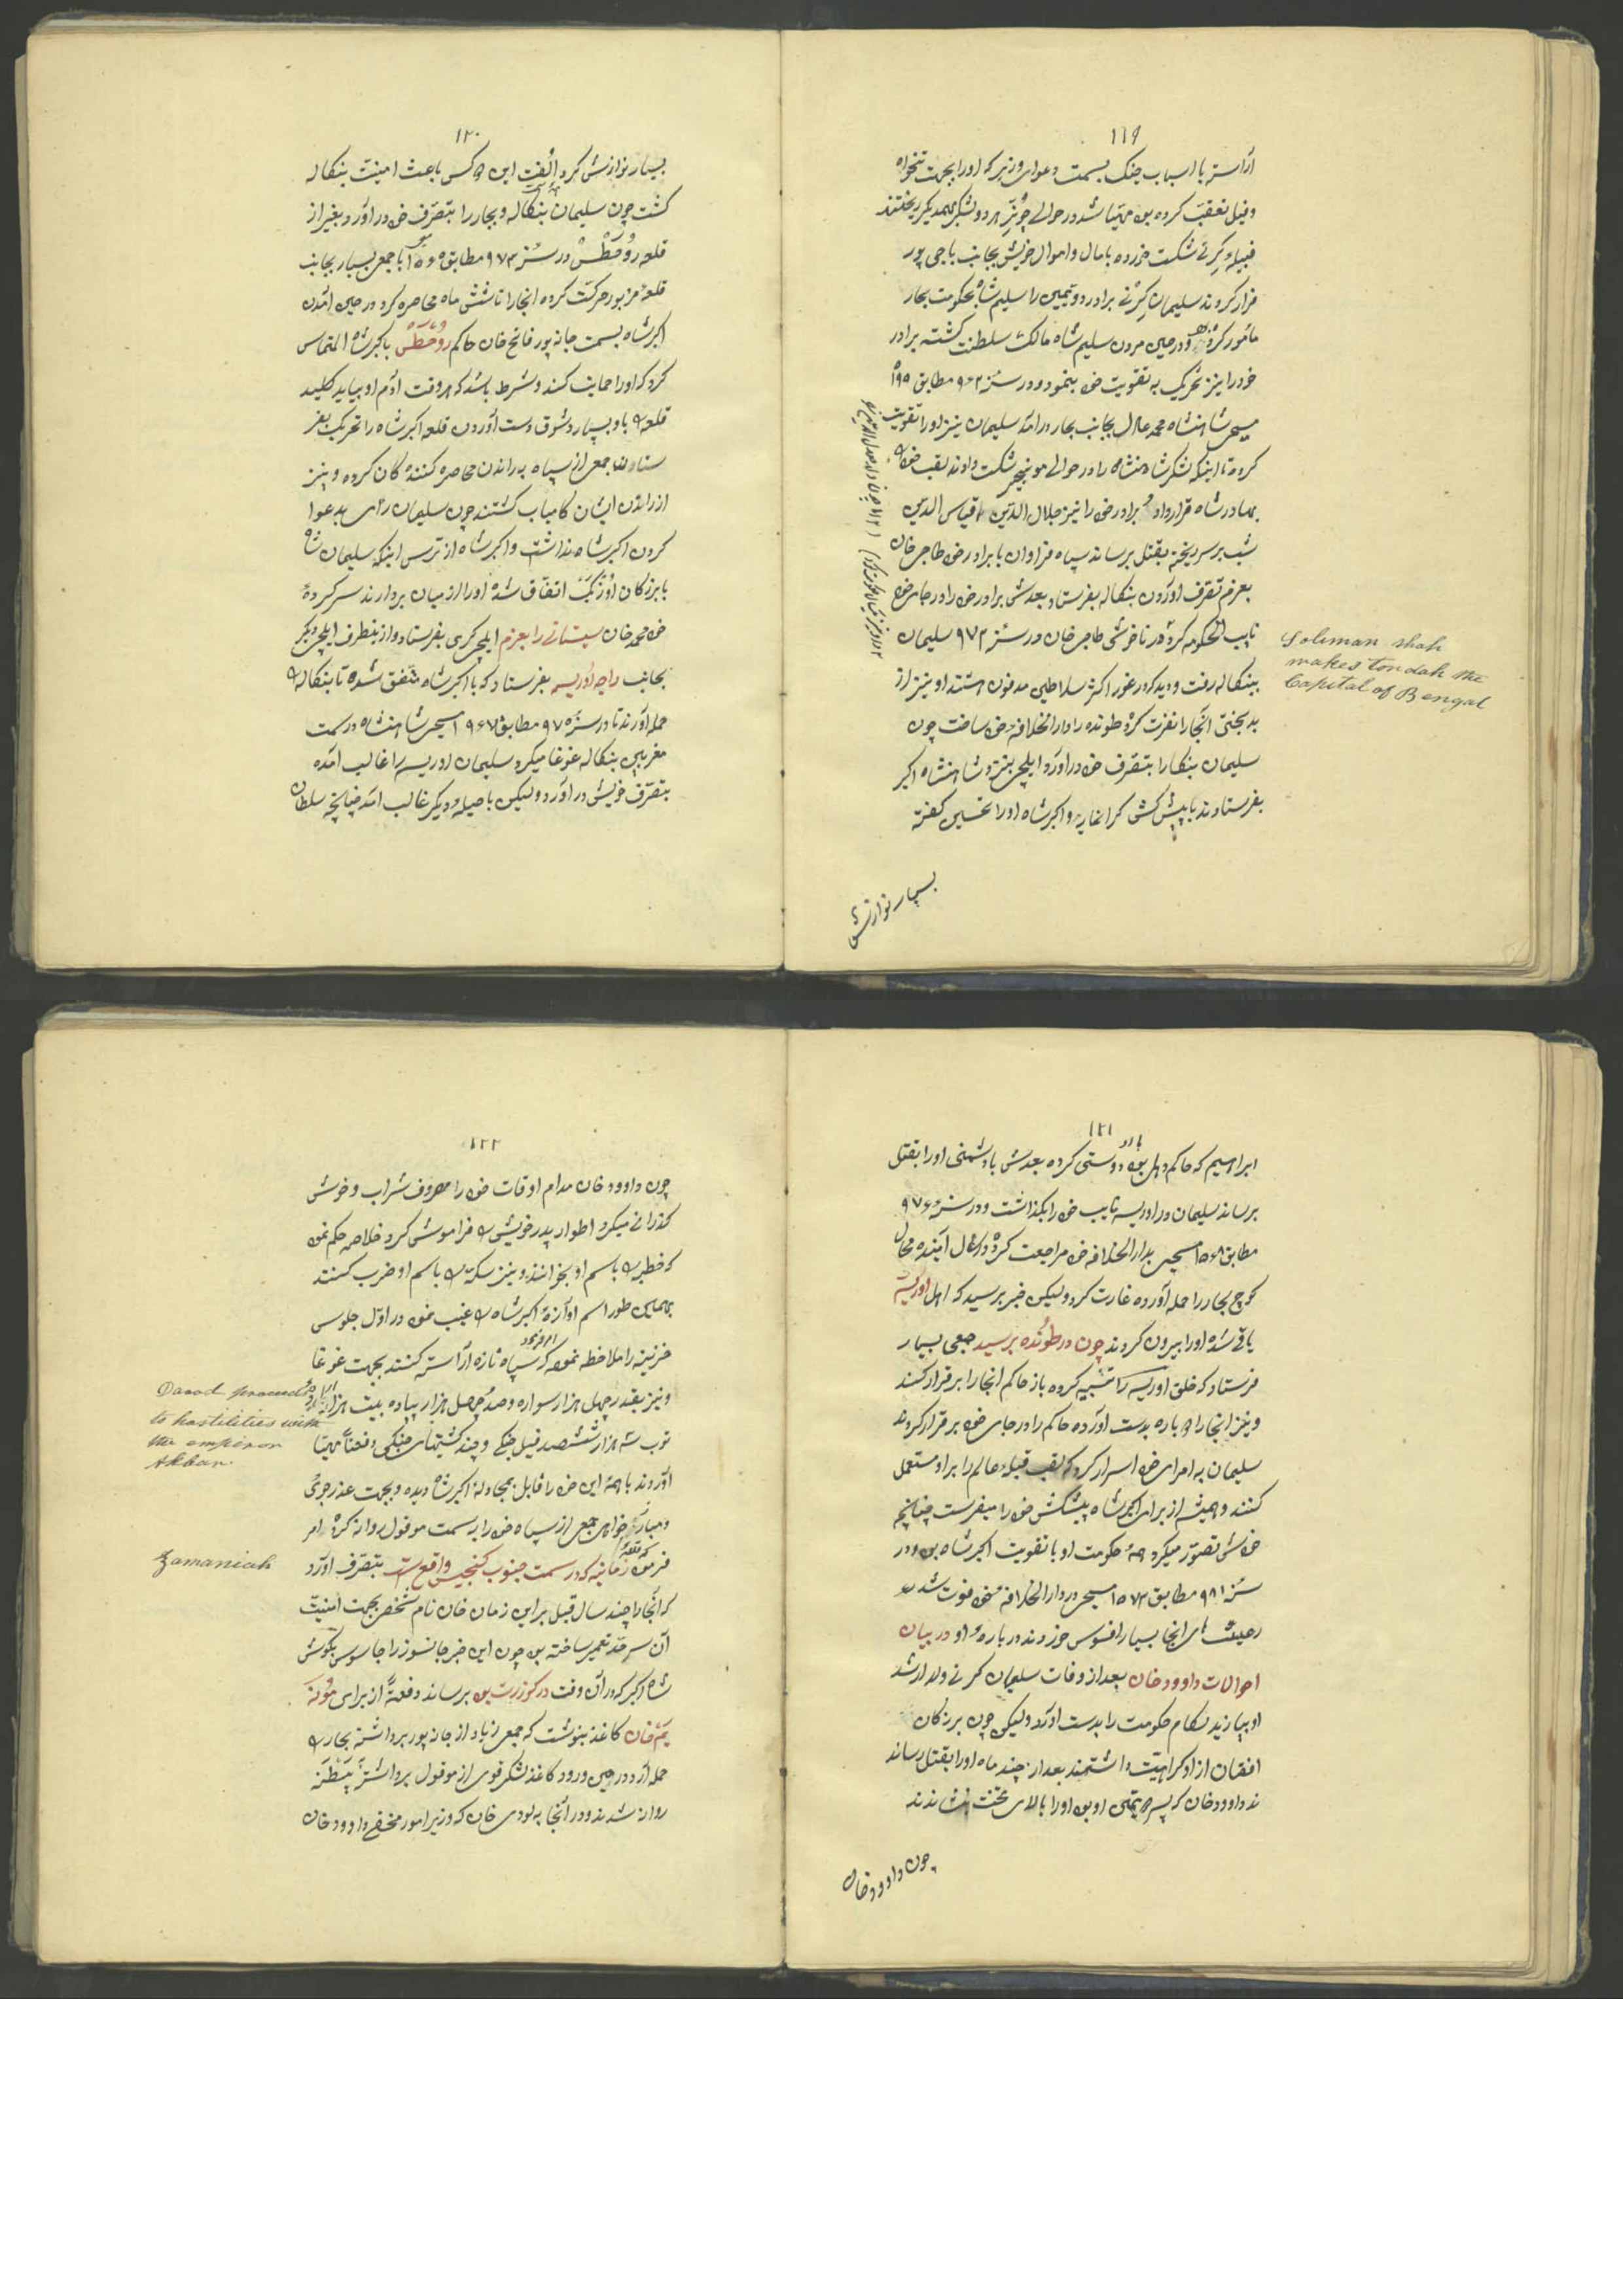 ۱۱۹
آراسته با اسباب جنک بسمت دعوای وزیر که اورا بجهت تنخواه
وفیل تعقب کرده بود مهیا شد در حوالے جونپر هر دو لشکر بهمدیکر ریختند
قبیله کرنے شکست خورده با مال و اموال خویش بجانب باجی پور
فرار کردند سلیمان کرنے برادر دویمین را سلیم شاه بحکومت بهار
مأمور کرده ودر حین مردن سلیم شاه مالک سلطنت کشته برادر
خودرا نیز تحریک به تقویت خود بنمود ودر سنۀ ۹۶۲ مطابق
مسیحی شاهنشاه محمد عادل بجانب بهار درآمد سلیمان نیز اورا تقویت
کرده تا اینکه لشکر شاهنشاه را در حوالے مونجیر شکست دادند لقب خود
بهادر شاه قرار داد و برادر خود را نیز جلال الدین
شب بر سر ریخته بقتل برساند سپاه فراوان با برادر خود طاجر خان
بعزم تصرف آوردن بنکاله بفرستاد بعدش برادر خود را در جای خود
نایب الحکومه کرده در ناخوشی طاجر خان در سنۀ ۹۷۲ سلیمان
ببنکاله رفت ودید که در غور اکثر سلاطین مدفون هستند او نیز از
بدبختی آنجا را نفرت کرده طونده را دار الخلافۀ خود ساخت چون
سلیمان بنکاله را بتصرف خود در آورد ایلچی بنزد شاهنشاه اکبر
بفرستادند با پیش کشی کرانمایه و اکبر شاه اورا تحسین کفته
بسیار نوازش
Soliman shah
makes Tondah the
Capital of Bengal
۱۲۰
بسیار نوازش کرد الفت این دو کس باعث امینت بنکاله
کشت چون سلیمان بنکاله وبهار را بتصرف خود در آورد بغیر از
قلعۀ روحطس در سنۀ ۹۷۳ مطابق ۱۵۶۵ با جمع بسیار بجانب
قلعۀ مزبور حرکت کرده آنجا را تا شش ماه محاصره کرد در حین آمدن
اکبر شاه بسمت جانه پور فاتح خان حاکم روحطس با کبر شاه التماس
کرد که اورا حمایت کند وشرط باشد که هر وقت آدم او بیاید کلید
قلعه را باو بسپارد شوق دست آوردن قلعه اکبر شاه را تحریک بفر
ستادن جمع از سپاه به راندن محاصره کنندکان کرده و نیز
از راندن ایشان کامیاب کشتند چون سلیمان رای بدعوا
کردن اکبر شاه نداشت و اکبر شاه از ترس اینکه سلیمان شاه
با بزرکان اوزبک اتفاق شده اورا از میان بردارند سرکردۀ
خود محمد خان سیستانے را بعزم ایلچی کری بفرستاد واز ینطرف ایلچی دیکر
بجانب راجه اوریسه بفرستاد که با اکبر شاه متفق شده تا بنکاله را
حمله آورند تا در سنۀ ۹۷۵ مطابق ۱۵۶۷ مسیحی شاهنشاه در سمت
مغربین بنکاله غوغا میکرد سلیمان اوریسه را غالب آمده
بتصرف خویش در آورد ولیکن با حیله دیکر غالب آمد چنانچه سلطان
۱۲۱
ابراهیم که حاکم دهلی بود باو دوستی کرده بعدش با دشمنی اورا بقتل
برساند سلیمان در اوریسه نایب خود را بکذاشت ودر سنۀ ۹۷۶
مطابق ۱۵۶۸ مسیحی بدار الخلافه خود مراجعت کرده در سال آینده محال
کوچ بهار را حمله آورده غارت کرد ولیکن خبر برسید که اهل اوریسه
یاقے شده اورا بیرون کردند چون در طونده برسید جمعی بسیار
فرستاد که خلق اوریسه را تنبیه کرده باز حاکم انجا را برقرار کنند
و نیز انجا را دو باره بدست آورده حاکم را در جای خود برقرار کردند
سلیمان به امرای خود اسرار کرد که لقب قبلۀ عالم را بر او مستعمل
کنند و همیشه از برای اکبر شاه پیشکش خود را میفرست چنانچه
خودش تصور میکرد همۀ حکومت او با تقویت اکبر شاه بود ودر
سنۀ ۹۸۱ مطابق ۱۵۷۳ مسیحی در دار الخلافۀ خود فوت شد
رعیت های انجا بسیار افسوس خوردند در بارۀ او در بیان
احوالات داوود خان بعد از وفات سلیمان کرنے ولد ارشد
او بیازید لکام حکومت را بدست آورد ولیکن چون بزرکان
افغان از او کراهیت داشتند بعد از چند ماه اورا بقتل رساند
ند داوود خان که پسر دویمی او بود اورا بالای تخت بنشاندند
چون داوود خان
۱۲۲
چون داوود خان مدام اوقات خود را مصروف شراب وخوش
کذرانے میکرد اطوار پدر خویش را فراموش کرد خلاصه حکم نمود
که خطبه را باسم او بخوانند و نیز سکه را باسم او ضرب کنند
بهمین طور اسم آوازۀ اکبر شاه را غیب نمود در اول جلوس
خزنیه را ملاخظه نمود امر فرمود که سپاه تازه آراسته کنند بجهت غوغا
ونیز بقدر چهل هزار سواره وصد وچهل هزار پیاده بیت هزار
توب سه هزار ششصد فیل جنکے وچند کشتیهای جنکی دفعتاً مهیا
آوردند با همۀ این خود را قابل بمجادلۀ اکبر شاه دیده وبجهت عذر جوئی
ومبارزه خواهی جمعی از سپاه خود را به سمت موقول روانه کرده امر
فرمود که قلعۀ زمانیه که در سمت جنوب کنجیس واقع است بتصرف آورد
که آنجا را چند سال قبل بر این زمان خان نام شخص بجهت امنیت
آن سرحد تعمیر ساخته بود چون این خبر جانسوز را جاسوس بکوش
شاه اکبر که در آن وقت در کوزرت بود برساند دفعةً از برای مونه
یم خان کاغذ بنوشت که جمعی زیاد از جانه پور برداشته بهار را
حمله آرد در حین ورود کاغذ لشکر قوی از موقول برداشته بپطنه
روانه شدند ودر آنجا به لودی خان که وزیر امور مخفے داوود خان
Daood proceeds
to hostilities with
the emperor
Akbar.
Zamaniah